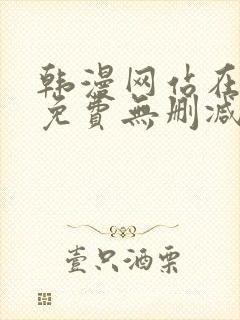 韩漫网站在
免費無删减
壹只酒票